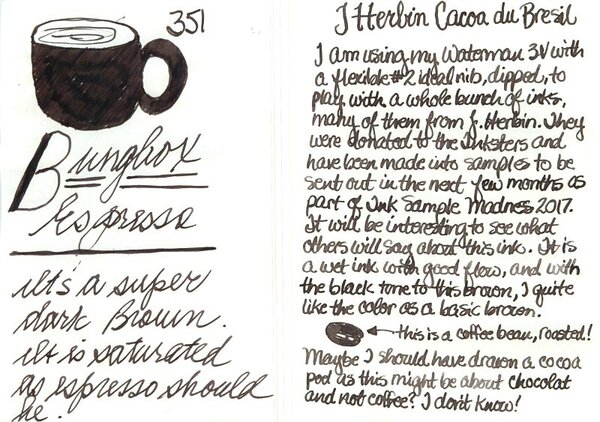 351
Bungbox
Espresso
It's a super
dark Brown.
It is saturated
as espresso should
be.
J Herbin Cacoa du Bresil
I am using my Waterman 3V with
a flexible #2 ideal nib, dipped, to
play with a whole bunch of inks,
many of them from J. Herbin. They
were donated to the Inksters and
have been made into samples to be
sent out in the next few months as
part of Ink Sample Madness 2017.
It will be interesting to see what
others will say about this ink. It is
a wet ink with good flow, and with
the black tone to this brown, I quite
like the color as a basic brown.
this is a coffee bean, roasted!
Maybe I should have drawn a cocoa
pod as this might be about chocolat
and not coffee? I don't know!